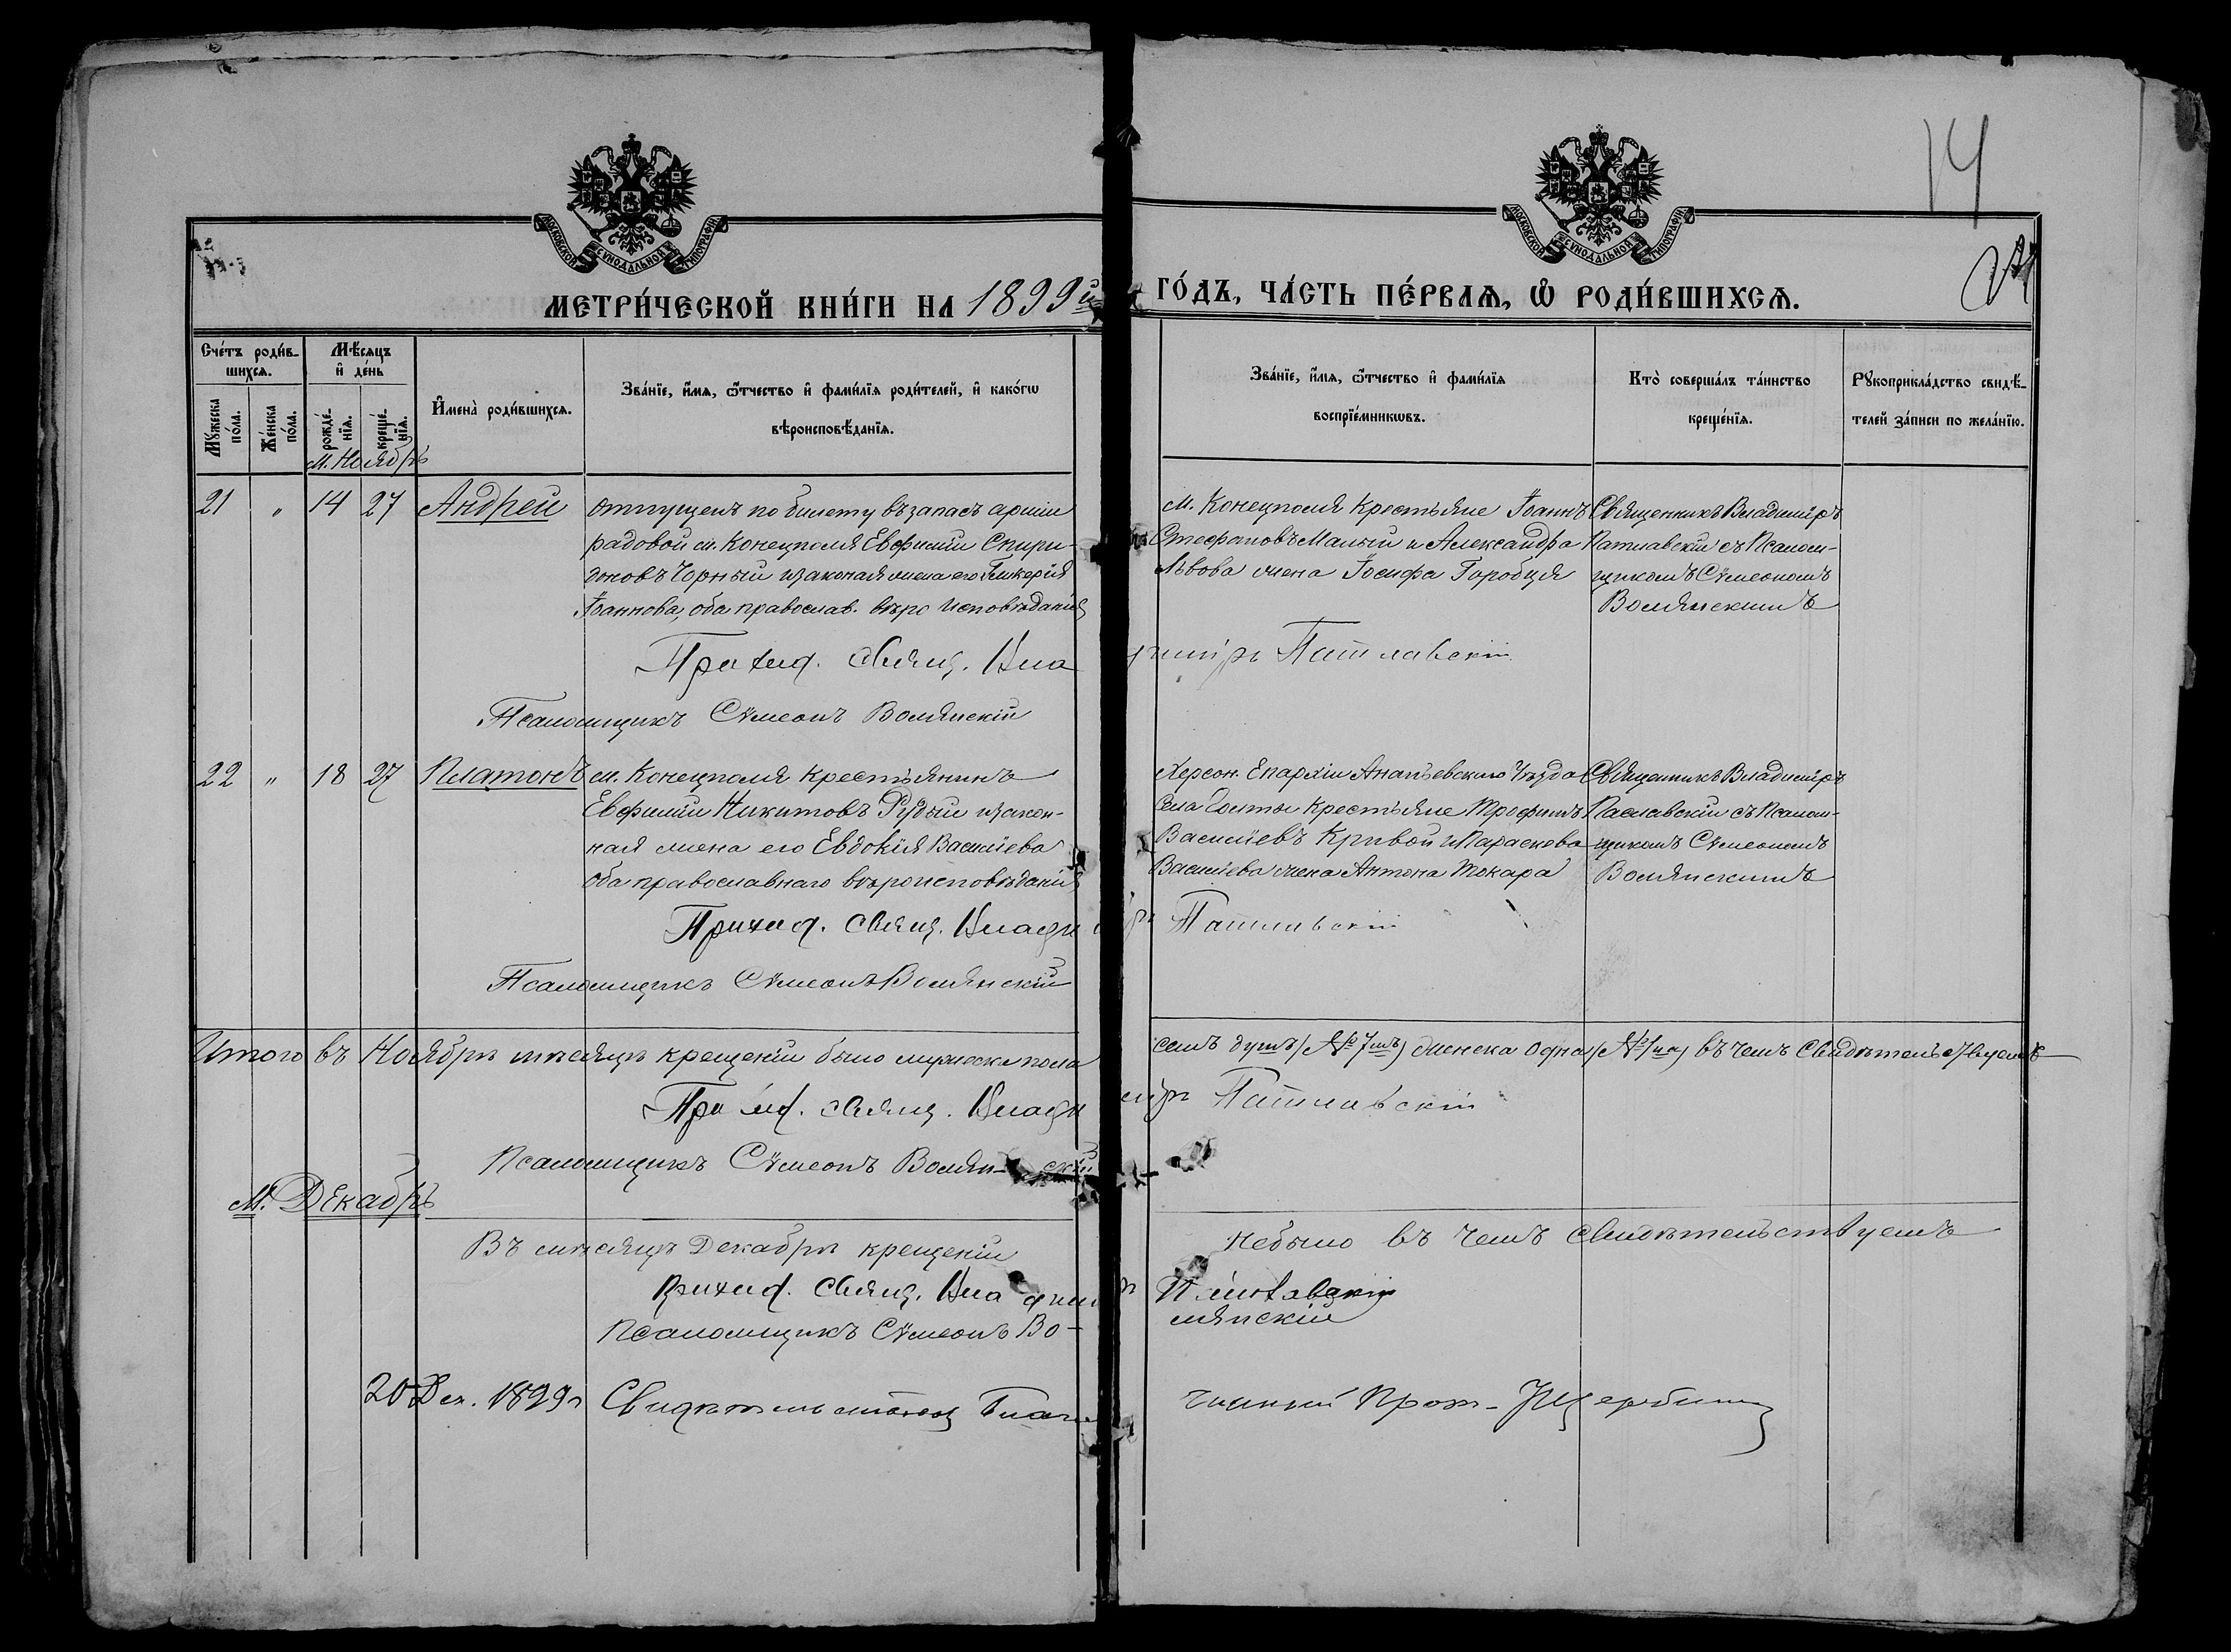 14
МОСКОВСКОЙ СУНОДАЛЬНОЙ ТИПОГРАФІИ.
МОСКОВСКОЙ СУНОДАЛЬНОЙ ТИПОГРАФІИ.
МЕТРИ́ЧЕСКОЙ КНИ́ГИ НА 1899й ГО́ДЪ, ЧА́СТЬ ПЕ́РВАѦ, Ѽ РОДИ́ВШИХСѦ.
Сче́тъ роди́в-
шихсѧ.
Мꙋжеска по́ла.
Же́нска по́ла.
Мѣ́сѧцъ
и҆ де́нь
рожде́-
нїѧ.
креще́-
нїѧ.
И҆мена̀ роди́вшихсѧ.
Зва́нїе, и҆́мѧ, ѻ҆́тчество и҆ фами́лїѧ роди́телей, и҆ како́гѡ
вѣроисповѣ́данїѧ.
Зва́нїе, и҆́мѧ, ѻ҆́тчество и҆ фами́лїѧ
воспрїе́мникѡвъ.
Кто̀ соверша́лъ та́инство
креще́нїѧ.
Рꙋкоприкла́дство свидѣ́-
телей за́писи по жела́нїю.
М. Ноябрь
21 " 14 27 Андрей
Отпущенъ по билету въ запасъ арміи
рядовой м. Конецполя Евфимій Спири-
доновъ Чорный и законая жена его Гликерія
Іоаннова, оба православ. вѣро исповѣданія
м. Конецполя Крестьяне Іоаннъ
Стефановъ Малый и Александра
Львова жена Іосифа Горобця
Священникъ Владиміръ
Патлавскій съ Псалом-
щикомъ Сѵмеономъ
Волянскимъ
Приход. Свящ. Владиміръ Патлавскій
Псаломщикъ Сѵмеонъ Волянскій
22 " 18 27 Платонъ
м. Конецполя крестьянинъ
Евфимій Никитовъ Рудый и закон-
ная жена его Евдокія Васильева
оба православнаго вѣроисповѣданія
Херсон. Епархіи Ананьевскаго Уѣзда
Села Голты Крестьяне Трофимъ
Васильевъ Кривой и Параскева
Васильева жена Антона Токара
Священникъ Владиміръ
Патлавскій съ Псалом-
щикомъ Сѵмеономъ
Волянскимъ
Приход. Свящ. Владиміръ Патлавскій
Псаломщикъ Сѵмеонъ Волянскій
Итого въ Ноябрѣ мѣсяцѣ крещеній было мужеска пола семъ душъ (№ 7мъ) женска одна (№ 1на) въ чемъ Свидѣтельствуемъ
Приход. Свящ. Владиміръ Патлавскій
Псаломщикъ Сѵмеонъ Волянскій
М. Декабрь
Въ мѣсяцѣ Декабрѣ крещеній небыло въ чемъ свидѣтельствуемъ
Приход. Свящ. Владиміръ Патлавскій
Псаломщикъ Сѵмеонъ Волянскій
20 Дек. 1899 г